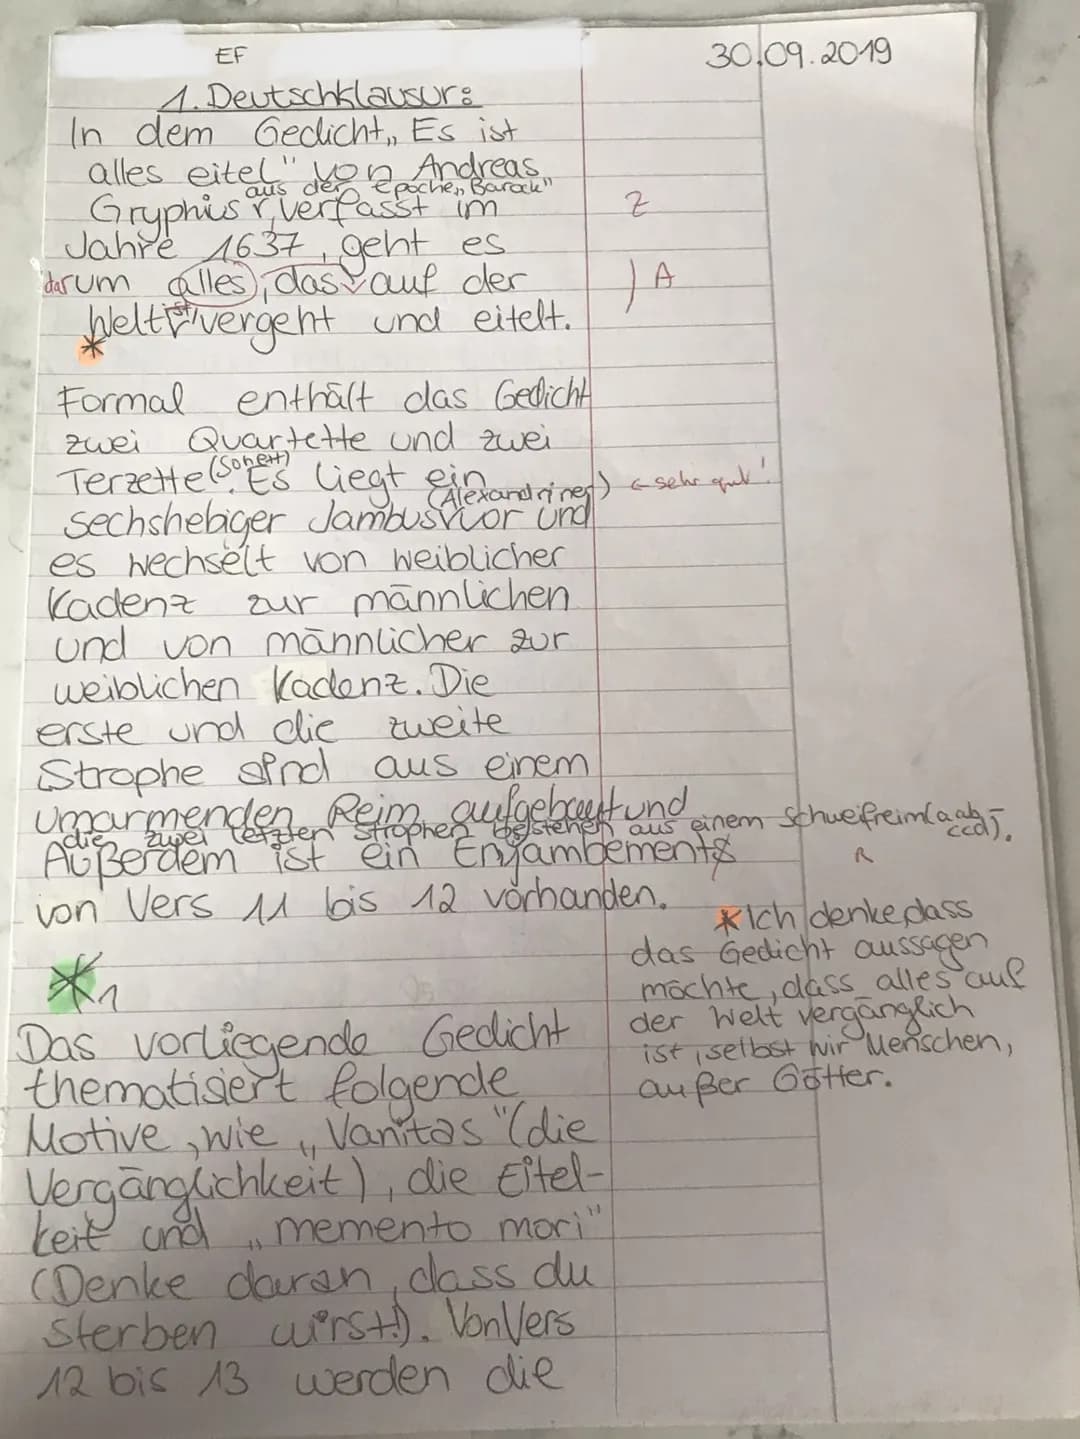 EF
30.09.2019
1. Deutschklausur:
In dem Gedicht „Es ist
alles eitel" von Andreas
aus der Epoche „Barock"
Gryphius, verfasst im
Z
Jahre 1637, geht es
darum alles, das auf der
A
Welt ist vergeht und eitelt.
*
Formal enthält das Gedicht
zwei Quartette und zwei
(Sonett)
Terzette. Es liegt ein
(Alexandriner)
← sehr gut!
sechshebiger Jambus vor und
es wechselt von weiblicher
Kadenz zur männlichen
und von männlicher zur
weiblichen Kadenz. Die
erste und die zweite
Strophe sind aus einem
umarmenden Reim aufgebaut und
die zwei letzten Strophen bestehen aus einem Schweifreim (aab ccd).
Außerdem ist ein Enjambements
R
von Vers 11 bis 12 vorhanden.
*Ich denke, dass
das Gedicht aussagen
möchte, dass alles auf
der Welt vergänglich
ist, selbst wir Menschen,
außer Götter.
*1
Das vorliegende Gedicht
thematisiert folgende
Motive, wie „Vanitas" (die
Vergänglichkeit), die Eitel-
keit und „memento mori"
(Denke daran, dass du
sterben wirst!). Von Vers
12 bis 13 werden die